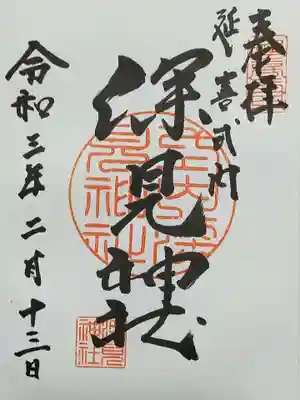 奉拝
延喜式内
深見神社
令和三年二月十三日